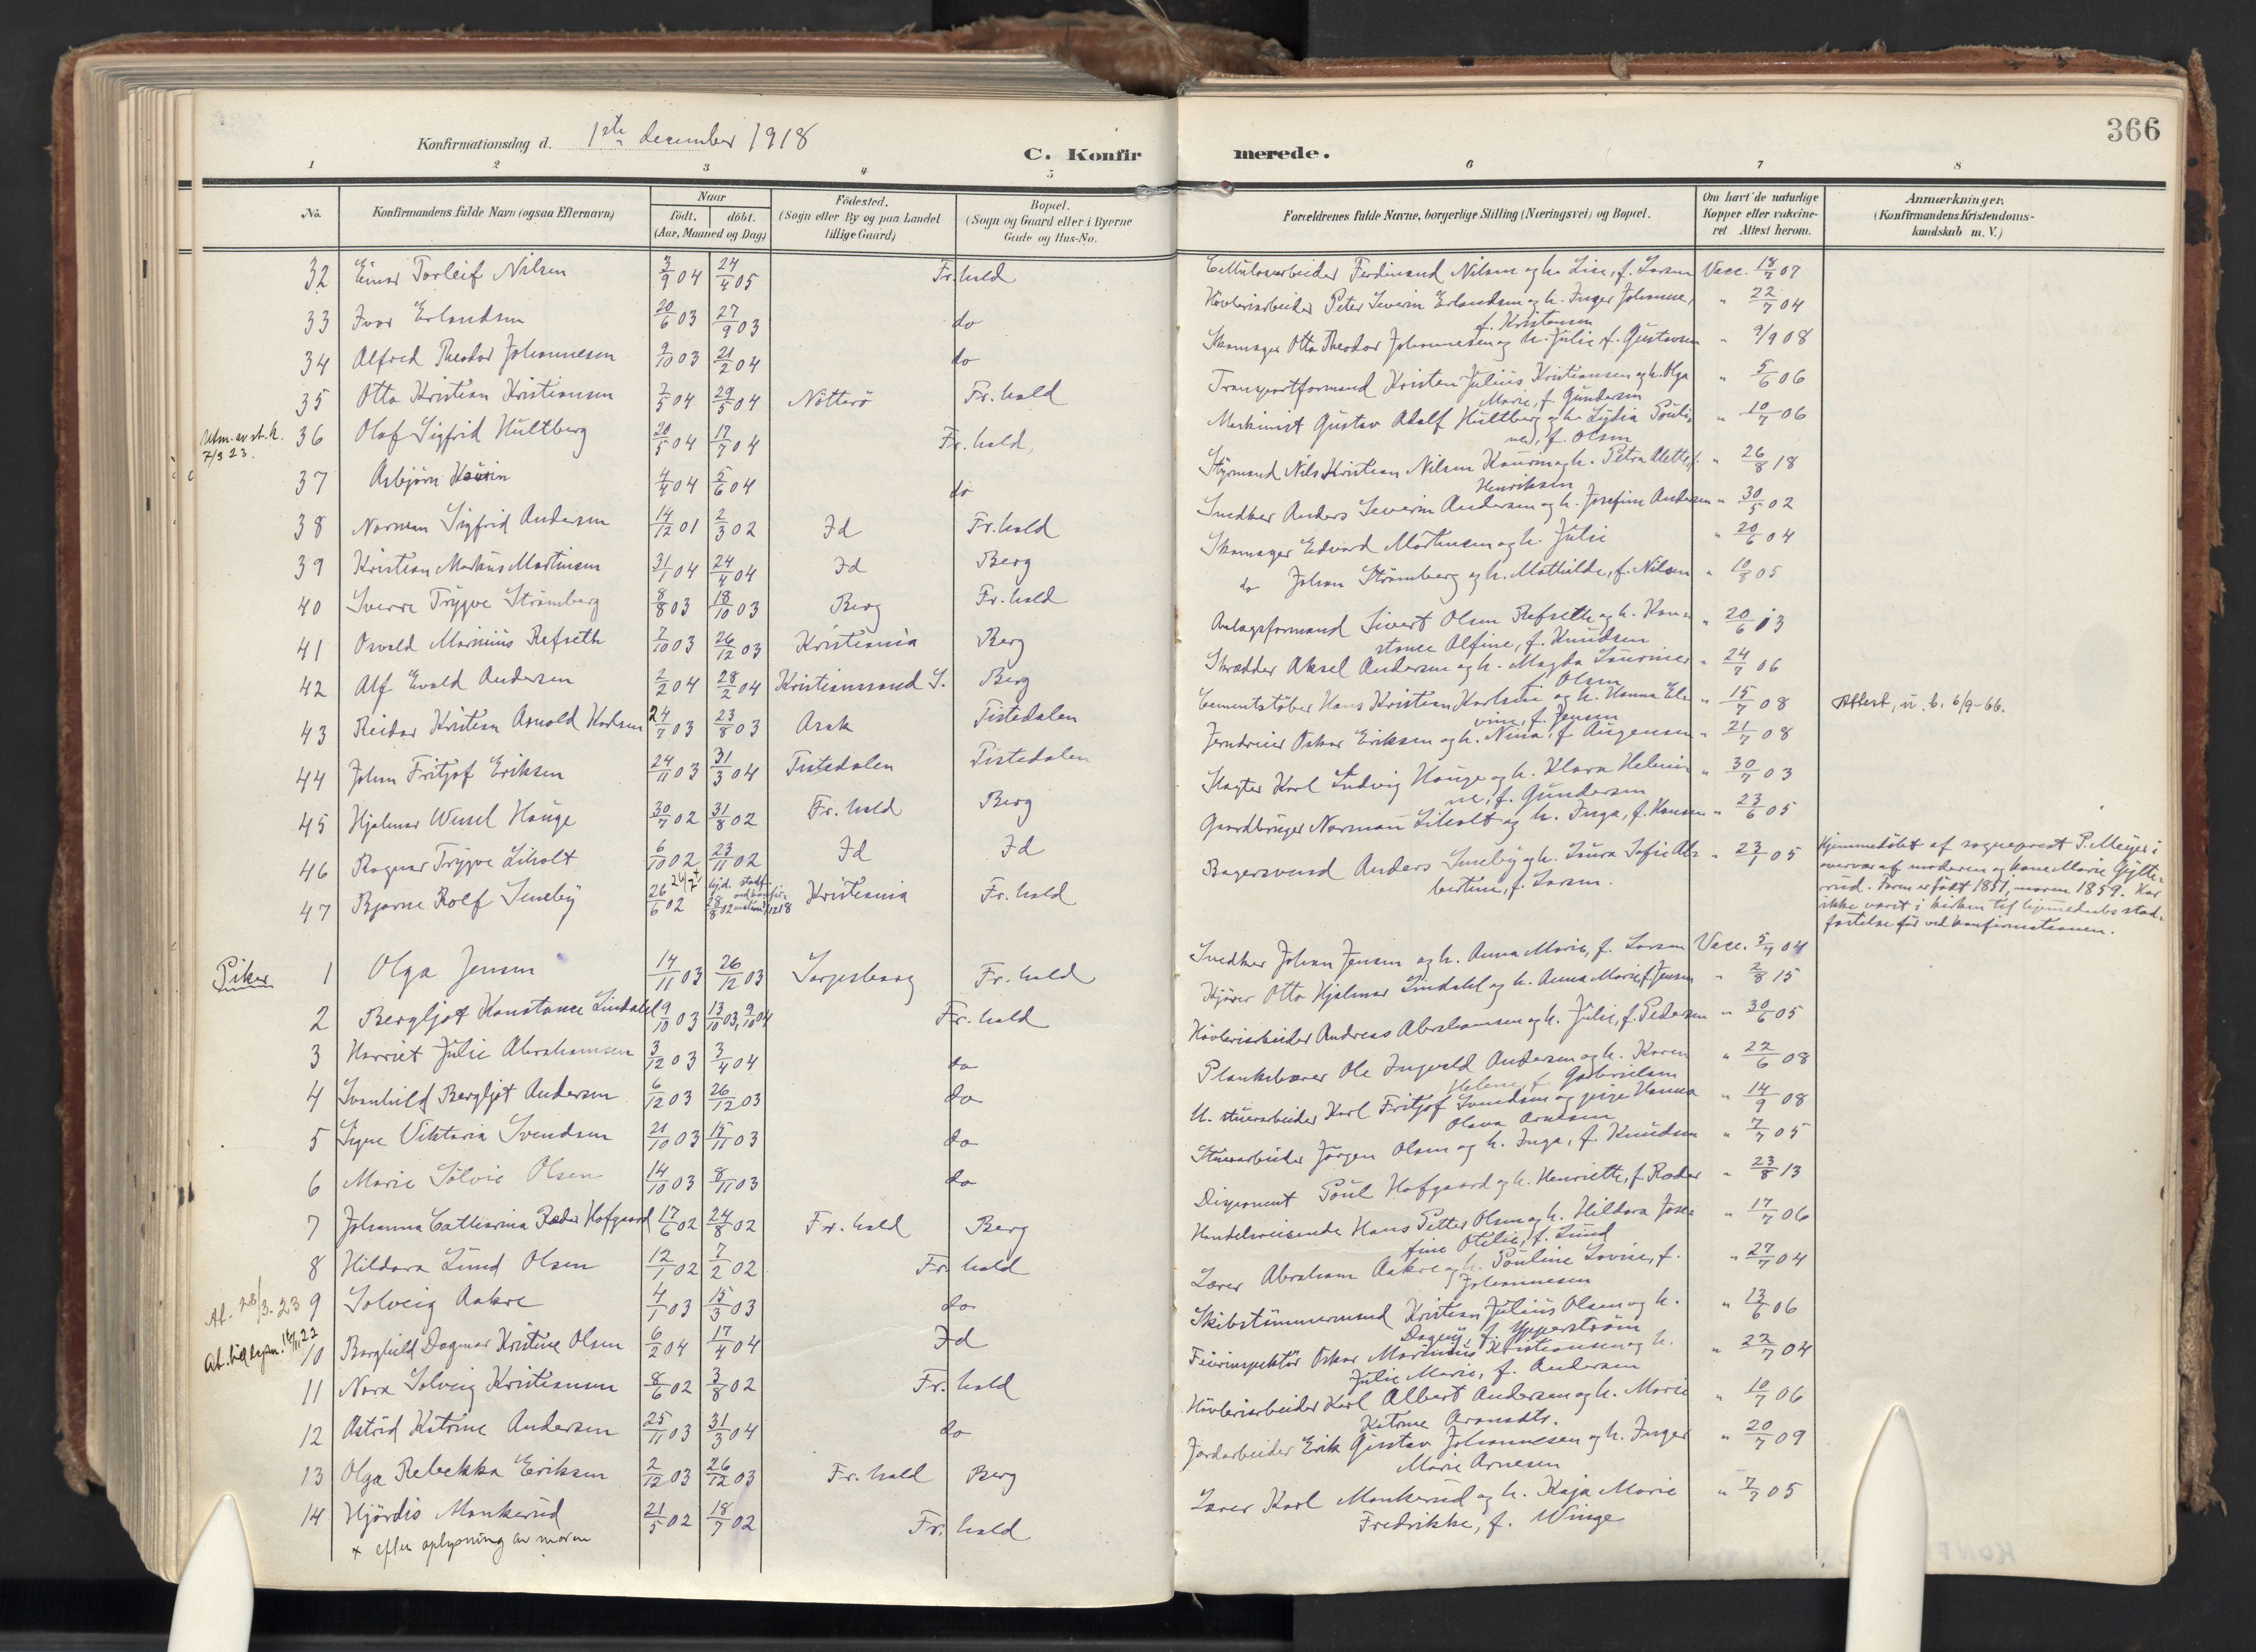 366
Konfirmationsdag d. 1ste december 1918
C. Konfir merede.
1 2 3 4 5 6 7 8
No. Konfirmandens fulde Navn (ogsaa Efternavn) Naar födt. döbt. (Aar, Maaned og Dag.) Födested. (Sogn eller By og paa Landet tillige Gaard.) Bopæl. (Sogn og Gaard eller i Byerne Gade og Hus-No. Forældrenes fulde Navne, borgerlige Stilling (Næringsvei) og Bopæl. Om havt de naturlige Kopper eller vakcineret Attest herom. Anmærkninger. (Konfirmandens Kristendomskundskab m. V.)
32 Einar Torleif Nilsen 3/9 04 24/4 05 Fr.hald Cellulosearbeider Ferdinand Nilsen og h. Lise, f. Larsen Vacc. 18/7 07
33 Ivar Erlandsen 20/6 03 27/9 03 do Høvleriarbeider Peter Severin Erlandsen og h. Inger Johanne, f. Kristensen " 22/7 04
34 Alfred Theodor Johannesen 9/10 03 21/2 04 do Skomager Otto Theodor Johannesen og h. Julie, f. Gustavsen " 9/9 08
35 Otto Kristian Kristiansen 7/5 04 29/5 04 Nötterö Fr. hald Transportformand Kristen Julius Kristiansen og h. Olga Marie, f. Gundersen " 5/6 06
7/3 23.
36 Olaf Sigfrid Hultberg 20/5 04 17/7 04 Fr. hald, Maskinist Gustav Adolf Hultberg og h. Lydia Pauline, f. Olsen " 10/7 06
37 Asbjørn Kaurin 4/4 04 5/6 04 do Styrmand Nils Kristian Nilsen Kaurin og h. Petra Alette f. Henriksen " 26/8 18
38 Norman Sigfrid Andersen 14/12 01 2/3 02 Id Fr. hald Snedker Anders Severin Andersen og h. Josefine Andersen " 30/5 02
39 Kristian Markus Martinsen 31/1 04 24/4 04 Id Berg Skomager Edvard Martinsen og h. Julie " 20/6 04
40 Sverre Trygve Strömberg 8/8 03 18/10 03 Berg Fr. hald do Johan Strömberg og h. Mathilde, f. Nilsen " 10/8 05
41 Osvald Marinius Refseth 7/10 03 26/12 03 Kristiania Berg Anlægsformand Sivert Olsen Refseth og h. Konstance Alfine, f. Knudsen " 20/6 13
42 Alf Evald Andersen 2/2 04 28/2 04 Kristianssand S. Berg Skrædder Aksel Andersen og h. Magda f. Olsen " 24/7 06
43 Reidar Kristian Arnold Karlsen 24/7 03 23/8 03 Asak Tistedalen Cementstøber Hans Kristian Karlsen og h. Hanna Elvine, f. Jensen " 15/7 08 Attest, u. b. 6/9-66.
44 Johan Fritjof Eriksen 24/11 03 31/3 04 Tistedalen Tistedalen Jerndreier Oskar Eriksen og h. Nina, f. Augensen " 21/7 08
45 Hjalmar Wessel Hauge 30/7 02 31/8 02 Fr. hald Berg Slagter Karl Ludvig Hauge og h. Klara Helmine, f. Gundersen " 30/7 03
46 Ragnar Trygve Liholt 6/10 02 23/11 02 Id Id Gaardbruger Norman Liholt og h. Inga, f. Hansen " 23/6 05
47 Bjarne Rolf Smeby 26/6 02 26/7 28/8 02 Kristiania Fr. hald Bagersvend Anders Smeby og h. Laura Sofie Albertine, f. Larsen. " 23/1 05
Hjemmedöbt af sogneprest P. Meyer i
overvær af moderen og kone Marie Gytte-
rud. Faren er født 1851, moren 1859. Har
ikke været i kirken til hjemmedaabs stad-
festelse før ved konfirmationen.
Piker
1 Olga Jensen 14/11 03 26/12 03 Sarpsborg Fr. hald Snedker Johan Jensen og h. Anna Marie, f. Larsen Vacc. 5/7 04
2 Bergljot Konstance Lindahl 9/10 03 13/10 03, 9/10 04 Fr. hald Kjører Otto Hjalmar Lindahl og h. Anna Marie f. Jensen " 2/8 15
3 Harriet Julie Abrahamsen 3/12 03 3/4 04 do Høvleriarbeider Andreas Abrahamsen og h. Julie, f. Pedersen " 30/6 05
4 Svanhild Bergljot Andersen 6/12 03 26/12 03 do Plankebærer Ole Ingvald Andersen og h. Karen Helene, f. Gabrielsen " 22/6 08
5 Signe Viktoria Svendsen 21/10 03 15/11 03 do U. stuerarbeider Karl Fritjof Svendsen og pige Hanna Olava Arntsen " 14/9 08
6 Marie Sölvie Olsen 14/10 03 8/11 03 do Stuerarbeider Jörgen Olsen og h. Inga, f. Knudsen " 7/7 05
7 Johanna Cathrina Røder Hofgaard 17/6 02 24/8 02 Fr. hald Berg Disponent Poul Hofgaard og h. Henriette, f. Røder " 23/8 13
8 Hildara Lund Olsen 12/1 02 7/2 02 Fr. hald Handelsreisende Hans Petter Olsen og h. Hildara Josefine Otilie, f. Lund " 17/7 06
At. 28/3-23
9 Solveig Aakre 4/1 03 15/3 03 do Lærer Abraham Aakre og h. Pauline Lovise, f. Johannesen " 27/7 04
10 Borghild Dagmar Kristine Olsen 6/2 04 17/4 04 Id Skibstömmermand Kristian Julius Olsen og h. Dagny, f. Ypperström " 13/6 06
11 Nora Solveig Kristiansen 8/6 02 3/8 02 Fr. hald Feierinspektör Oskar Marinius Kristiansen og h. Julie Marie, f. Andersen " 22/7 04
12 Astrid Katrine Andersen 25/11 03 31/3 04 do Høvleriarbeider Karl Albert Andersen og h. Marie Katrine Aronsdtr. " 10/7 06
13 Olga Rebekka Eriksen 2/12 03 26/12 03 Fr. hald Berg Jordarbeider Erik Gustav Johannesen og h. Inger Marie Arnesen " 20/7 09
14 Hjördis Monkerud 21/5 02 18/7 02 Fr. hald Lærer Karl Monkerud og h. Kaja Marie Fredrikke, f. Winge " 7/7 05
x efter oplysning av moren